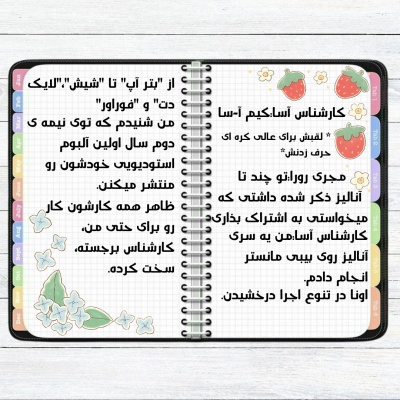 کارشناس آسا:کیم آ-سا
* لقبش برای عالی کره ای
حرف زدنش*
مجری رورا:تو چند تا
آنالیز ذکر شده داشتی که
میخواستی به اشتراک بذاری
کارشناس آسا:من یه سری
آنالیز روی بیبی مانستر
انجام دادم.
اونا در تنوع اجرا درخشیدن.
از "بتر آپ" تا "شیش"،"لایک
دت" و "فوراور"
من شنیدم که توی نیمه ی
دوم سال اولین آلبوم
استودیویی خودشون رو
منتشر میکنن.
ظاهر همه کارشون کار
رو برای حتی من،
کارشناس برجسته،
سخت کرده.